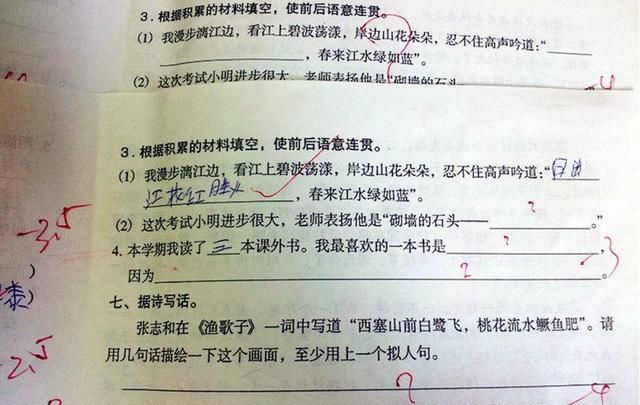 3. 根据积累的材料填空，使前后语意连贯。
(1) 我漫步漓江边，看江上碧波荡漾，岸边山花朵朵，忍不住高声吟道：“
，春来江水绿如蓝”。
(2) 这次考试小明进步很大，老师表扬他是“砌墙的石头
-4
3. 根据积累的材料填空，使前后语意连贯。
(1) 我漫步漓江边，看江上碧波荡漾，岸边山花朵朵，忍不住高声吟道：“日出
江花红胜火，春来江水绿如蓝”。
(2) 这次考试小明进步很大，老师表扬他是“砌墙的石头——？。”
-3.5
4. 本学期我读了三本课外书。我最喜欢的一本书是？，
-3
因为？。
)
泰)
七、据诗写话。
张志和在《渔歌子》一词中写道“西塞山前白鹭飞，桃花流水鳜鱼肥”。请
-2.5
用几句话描绘一下这个画面，至少用上一个拟人句。
？
-4